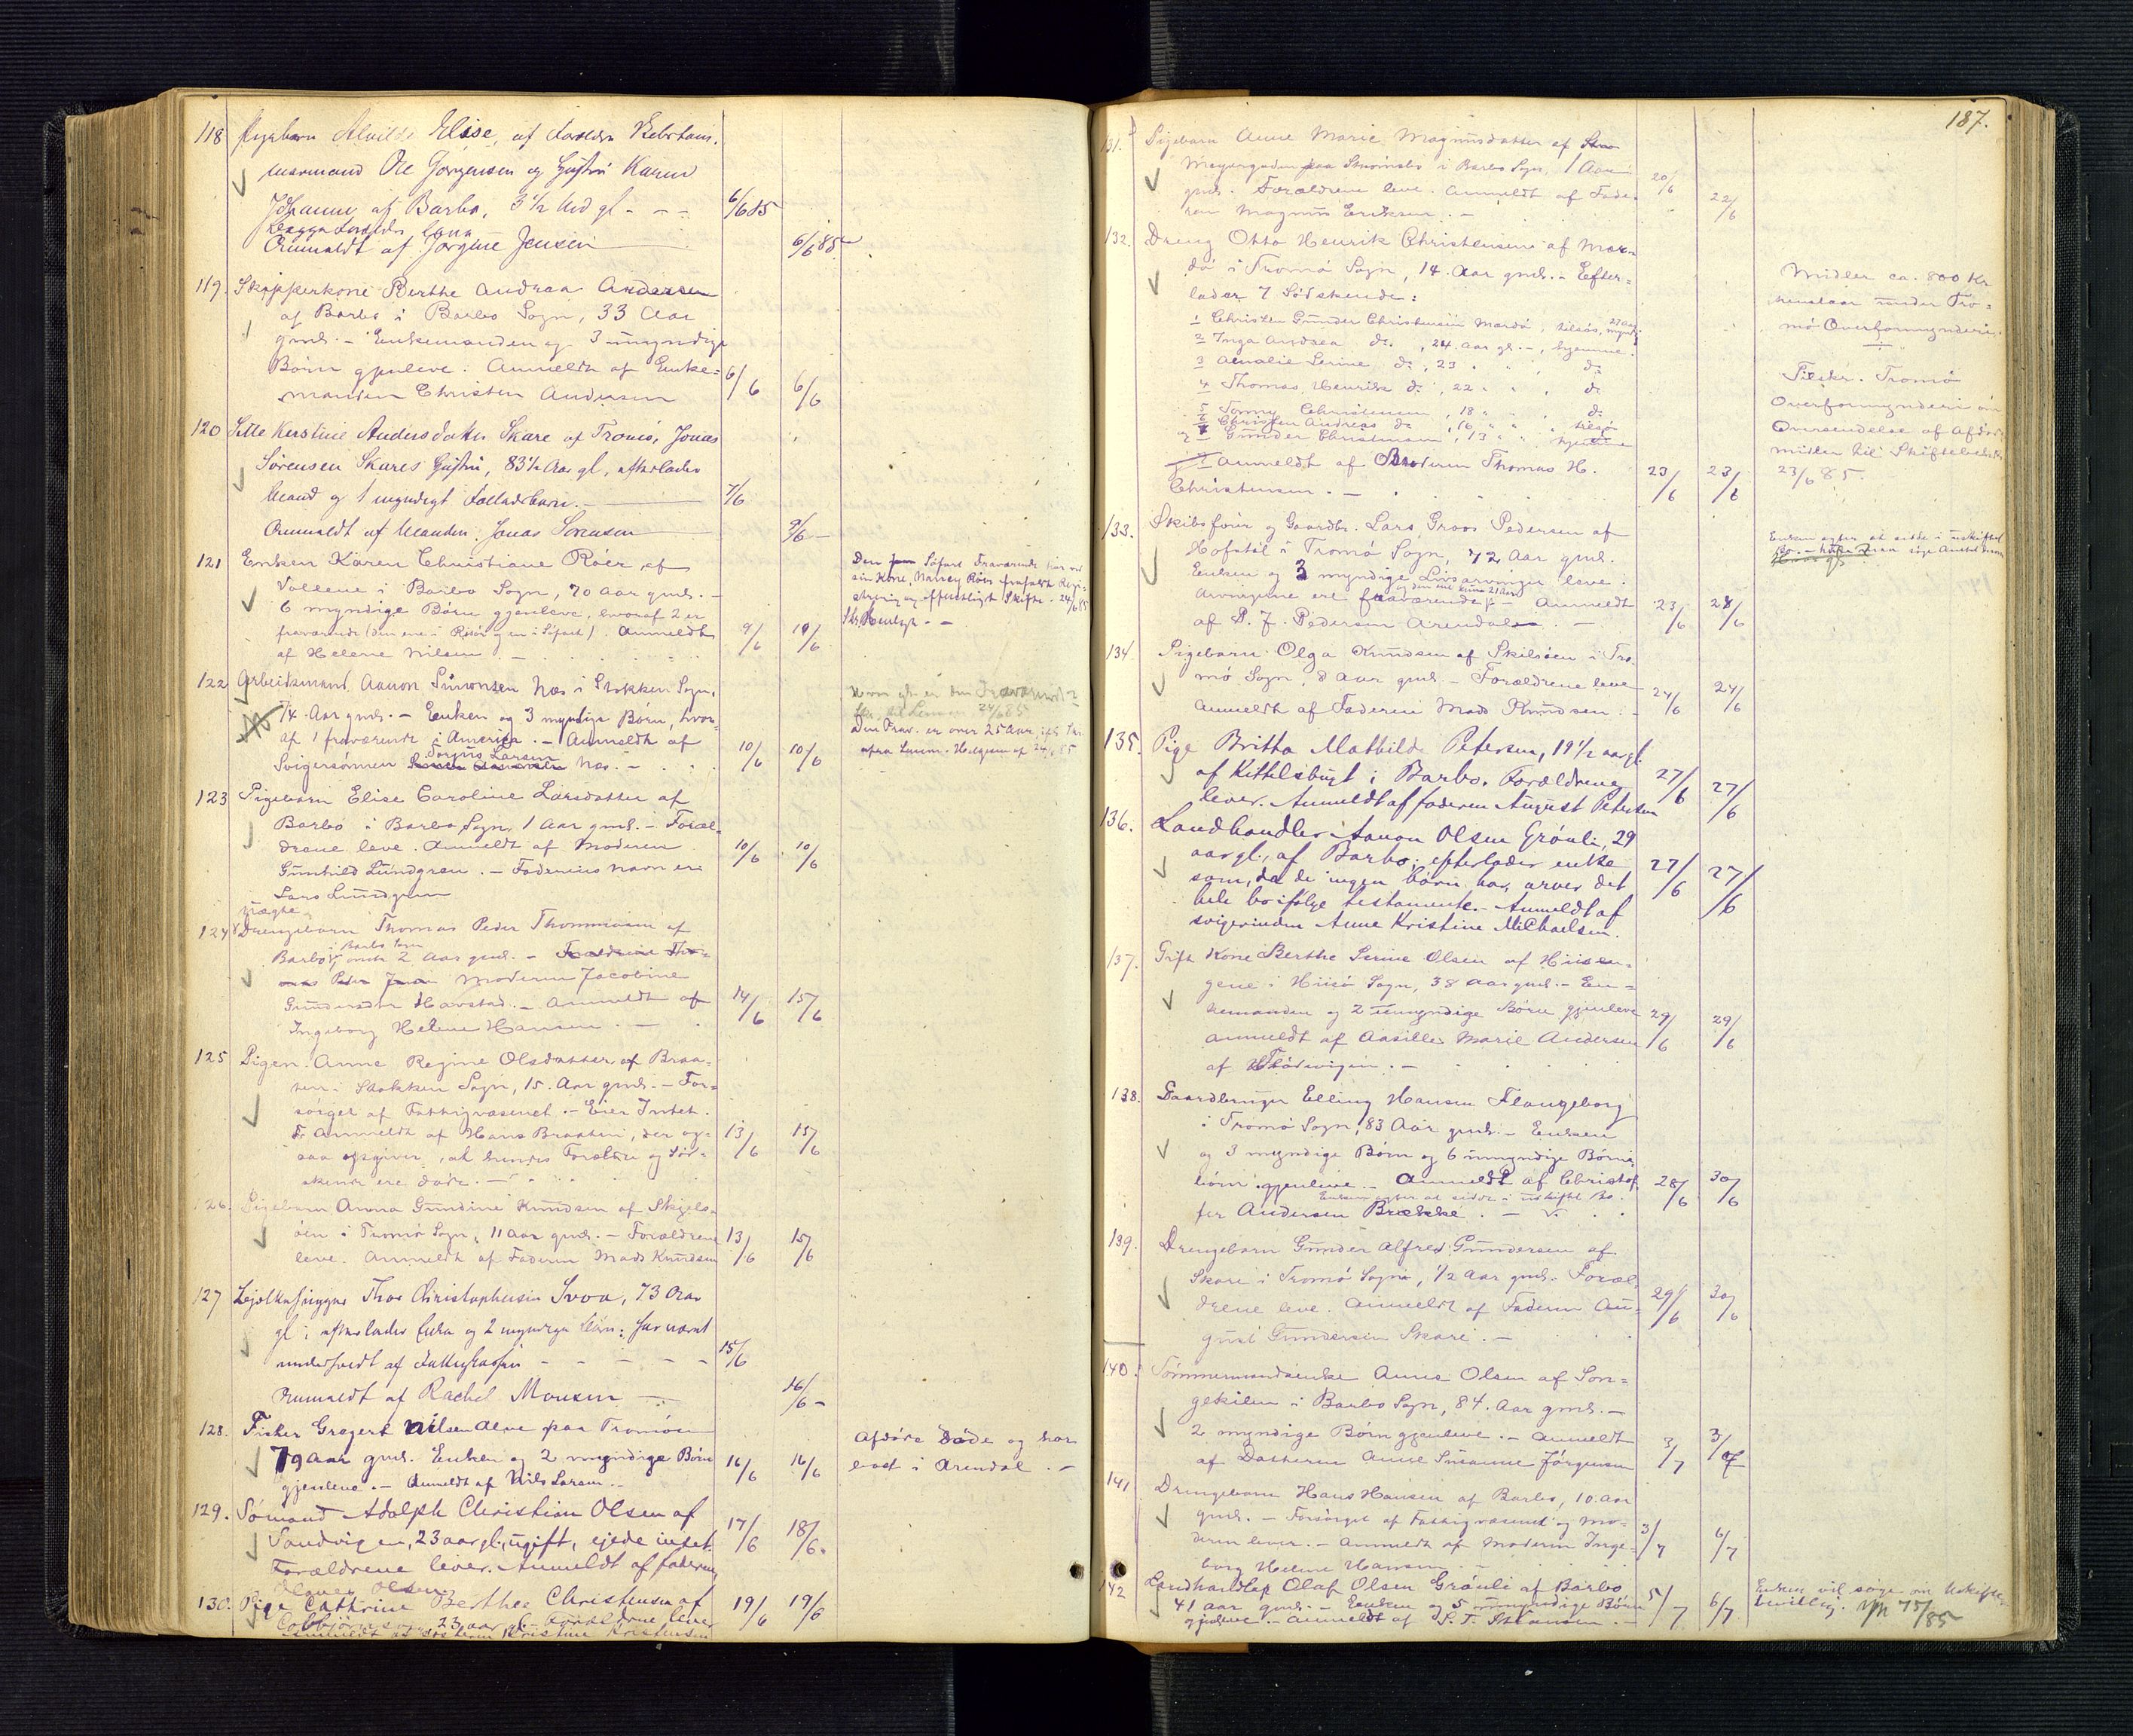 118 Pigebarn Alvilde Elise, af Forældre
mermand Ole Jørgensen og Hustru Karen
Johanne af Barbo, 3½ Md gl - - - 6/6 85
begge Forældre leve
Anmeldt af Jørgine Jensen 6/6 85
119. Skipperkone Berthe Andrea Andersen
af Barbo i Barbo Sogn, 33 Aar
gml. - Enkemanden og 3 umyndige
Børn gjenleve. Anmeldt af Enke=
manden Christen Andersen 6/6 6/6
120 Sille Kerstine Andersdatter Skare af Tromø, Jonas
Sørensen Skares Hustru, 83½ Aar gl, efterlader
Mand og 1 myndigt Barn. - 7/6
Anmeldt af Manden Jonas Sørensen 9/6 -
121 Enken Karen Christiane Röer, af
Vollene i Barbo Sogn, 70 Aar gml. -
6 myndige Børn gjenleve, hvoraf 2 er
fraværende (den ene i Risør og en i Söfart). Anmeldt
af Helene Nilsen 9/6 10/6
Den Söfart Fraværende har ved
sin Kone, Nancy Röer frafaldt Regi=
strering og offentligt Skifte. - 24/6 85
122 Arbeidsmand Aanon Simonsen Næs i Stokken Sogn,
74 Aar gml. - Enken og 3 myndige Børn, hvor=
af 1 fraværende i America. - Anmeldt af
Svigersønnen Torjus Larsen Næs. - 10/6 10/6
Hvor er den Fraværende?
24/6 85
Den Frav. er over 25 Aar,
123 Pigebarn Elise Caroline Larsdatter af
Barbo i Barbo Sogn, 1 Aar gml. - Foræl=
drene leve. Anmeldt af Moderen
Gunhild Lundgren. - Faderens Navn er
Lars Lundgren 10/6 10/6
uægte
124 Drengebarn Thomas Peder Thommesen af
Barbo i Barbo Sogn, 2 Aar gml. - Forældrene
Moderen Jacobine
Havstad. - Anmeldt af
Ingeborg Helene Hansen. - 14/6 15/6
125 Pigen Anne Regine Olsdatter af Braa=
ten i Stokken Sogn, 15 Aar gml. - For=
sørget af Fattigvæsenet. - Eier Intet.
Anmeldt af Hans Braaten, der og=
saa opgiver, at hendes Forældre og Sød=
skende ere døde. - 13/6 15/6
126. Pigebarn Anna Gundine Knudsen af Skjels=
öen i Tromø Sogn, 11 Aar gml. - Forældrene
leve. Anmeldt af Faderen Mads Knudsen 13/6 15/6
127 Thor Christophersen Svoa, 73 Aar
gl; efterlader Enke og 2 myndige Børn; har været
understøttet af Fattigkassen - - - - 15/6
Anmeldt af Rachel Monsen 16/6 -
128. Fisker Gregert Nilsen Alve paa Tromøen
79 Aar gml. Enken og 2 myndige Børn
gjenleve. - Anmeldt af Nils Larsen. - 16/6 16/6
Afdøde døde og har
boet i Arendal. -
129. Sømand Adolph Christian Olsen af
Sandvigen, 23 aar gl., ugift, ejede intet.
Forældrene lever. Anmeldt af faderen
Olsen 17/6 18/6.
130. Pige Cathrine Berthee Christensen af
Colbjörnsvig, 23 aar gl. - Forældrene lever
Anmeldt af Søsteren Kristine Kristensen 19/6 19/6
187.
131. Pigebarn Anne Marie Magnusdatter af
Meyergaden paa Strømsbo i Barbo Sogn, 1 Aar
gml. Forældrene leve. Anmeldt af Fade=
ren Magnus Eriksen. - 20/6 22/6
132. Dreng Otto Henrik Christensen af Mær=
dø i Tromø Sogn, 14 Aar gml. - Efter=
lader 7 Södskende:
1 Christen Gunder Christensen Mærdø, tilsøs, 27 Aar
2 Inga Andrea do, 24 Aar gl. -, hjemme.
3 Amalie Serine do, 23 " " , do
4 Thomas Henrik do, 22 " " , do
5 Tommy Christensen, 18 " " , do
6 Christen Andreas do, 16 " " , tilsøs
og 7 Gunder Christensen, 13 " " , hjemme
Anmeldt af Broderen Thomas H.
Christensen. - 23/6 23/6
Midler ca. 800 Kr
henstaar under Tro=
mø Overformynderi.
Tilskr. Tromø
Overformynderi om
Oversendelse af Afdødes
midler til Skifteretten
23/6 85.
133. Skibsfører og Gaardbr. Lars Groos Pedersen af
Hofstøl i Tromø Sogn, 72 Aar gml.
Enken og 3 myndige Livsarvinger leve.
Arvingerne ere fraværende. - Anmeldt
af P. J. Pedersen Arendal. - 23/6 28/6
Enken agter at sidde i uskiftet
Bo.
134 Pigebarn Olga Knudsen af Skilsöen i Tro=
mø Sogn, 8 Aar gml. - Forældrene leve
Anmeldt af Faderen Mads Knudsen. - 24/6 24/6
135. Pige Britta Mathilde Petersen, 19½ aar gl.
af Kittelsbugt i Barbo. Forældrene
lever. Anmeldt af faderen August Petersen 27/6 27/6
136. Landhandler Aanon Olsen Grönli, 29
aar gl., af Barbo; efterlader enke
som, da de ingen børn har, arver det
hele bo ifølge testamente. - Anmeldt af
svigerinden Anne Kristine Michaelsen. 27/6 27/6
137. Gift Kone Berthe Serine Olsen af Hiisen=
gene i Hiisø Sogn, 38 Aar gml. - En=
kemanden og 2 umyndige Børn gjenleve
Anmeldt af Aasille Marie Andersen
af Flödevigen. - 29/6 29/6
138. Gaardbruger Elling Hansen Flangeborg
i Tromø Sogn, 83 Aar gml. - Enken
og 3 myndige Børn og 6 umyndige Børne=
børn gjenleve. - Anmeldt af Christof=
fer Andersen Brække. - 28/6 30/6
Enken agter at sidde i uskiftet Bo.
139. Drengebarn Gunder Alfred Gundersen af
Skare i Tromø Sogn, ½ Aar gml. Foræl=
drene leve. Anmeldt af Faderen Au=
gust Gundersen Skare. - 29/6 30/6
140. Tømmermandsenke Anne Olsen af Son=
gekilen i Barbo Sogn, 84 Aar gml. -
2 myndige Børn gjenleve. - Anmeldt
af Datteren Anne Susanne Jörgensen 3/7 3/7
141 Drengebarn Hans Hansen af Barbo, 10 Aar
gml. - Forsørget af Fattigvæsenet og Mo=
deren lever. - Anmeldt af Moderen Inge=
borg Helene Hansen. - 3/7 6/7
142 Landhandler Olaf Olsen Grönli af Barbo,
41 Aar gml. - Enken og 5 umyndige Børn
gjenleve. - Anmeldt af 5/7 6/7
Enken vil søge om Uskifte=
bevilling. 75/85